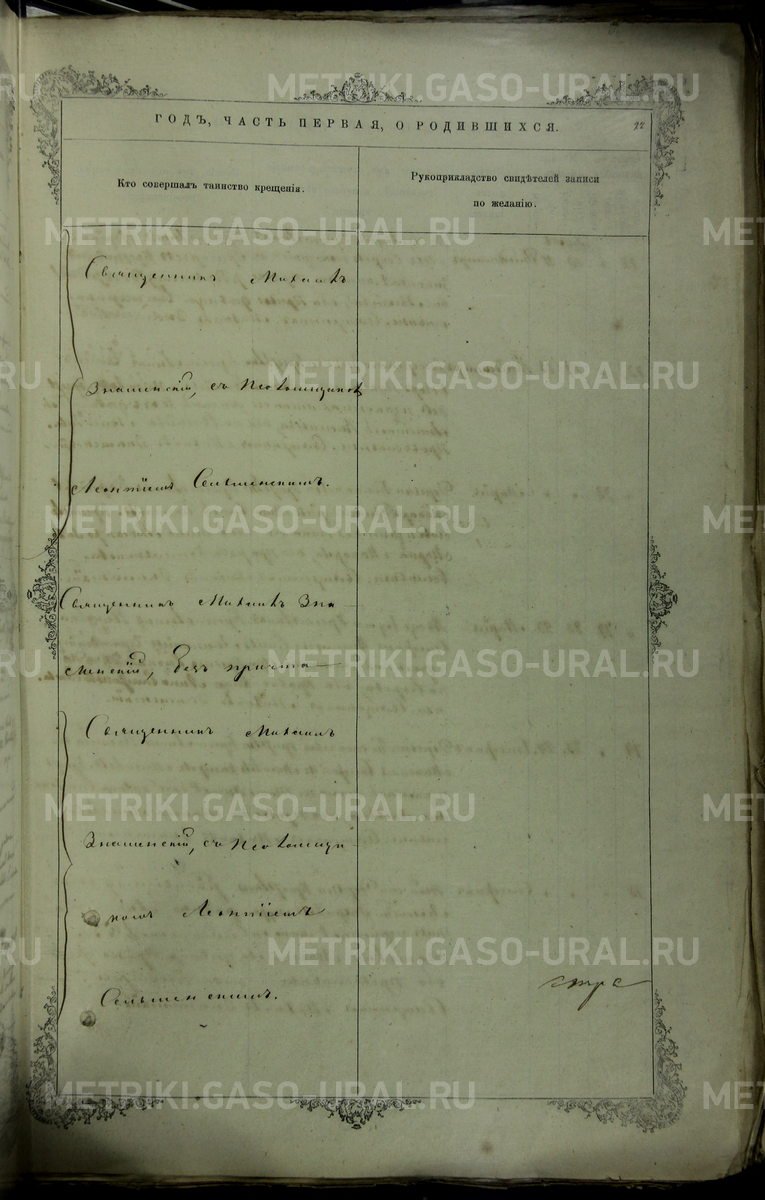 METRIKI.GASO-URAL.RU
ГОДЪ, ЧАСТЬ ПЕРВАЯ, О РОДИВШИХСЯ.
22
Кто совершалъ таинство крещенія.
Рукоприкладство свидѣтелей записи
по желанію.
Священникъ Михаилъ
Знаменскій, съ Псаломщиков
Леонтіемъ
Священникъ Михаилъ Зна
менскій, безъ причта
Священникъ Михаилъ
Знаменскій, съ Псаломщи
комъ Леонтіемъ